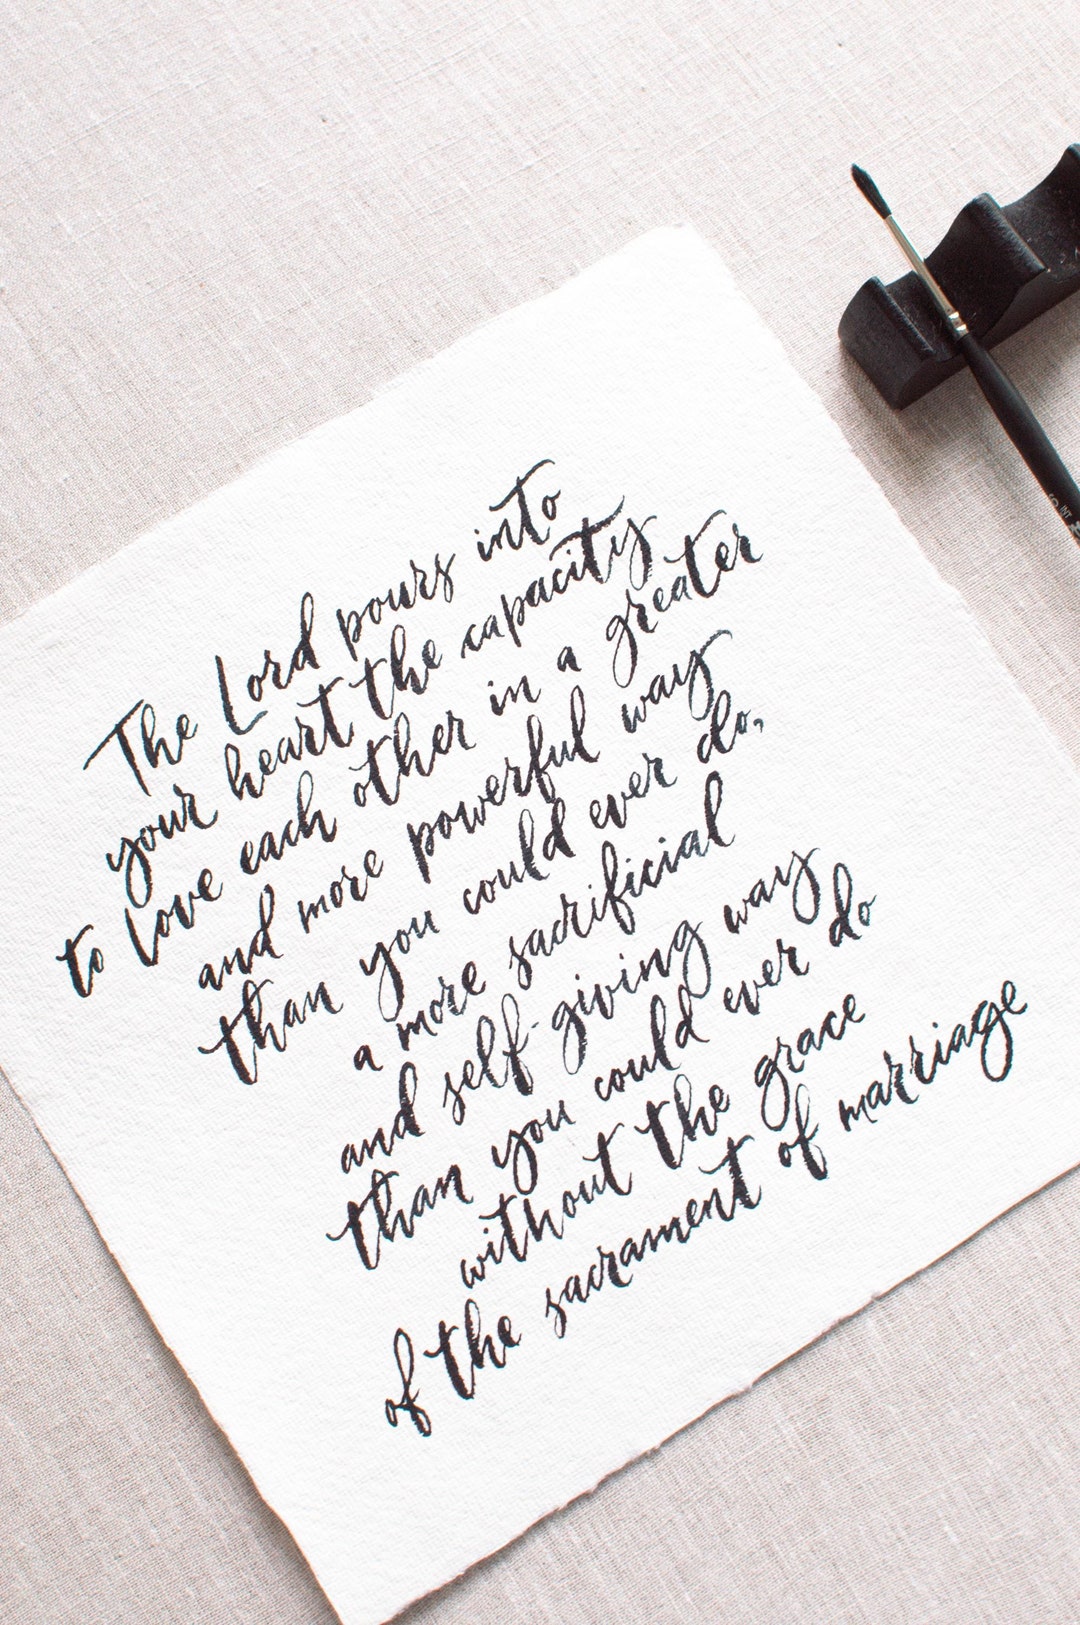 The Lord pours into
your heart the capacity
to love each other in a greater
and more powerful way
than you could ever do,
a more sacrificial
and self-giving way
than you could ever do
without the grace
of the sacrament of marriage